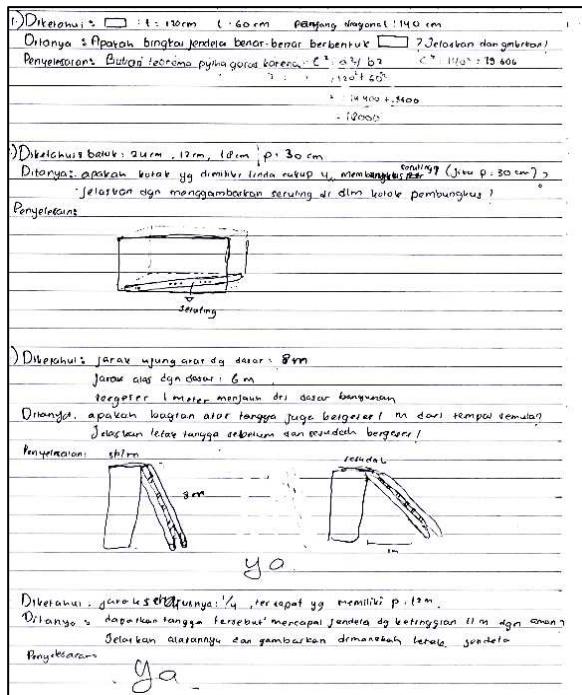 1.) Diketahui : ▭ : t = 120cm l = 60 cm panjang diagonal : 140 cm
Ditanya : Apakah bingkai jendela benar-benar berbentuk ▭ ? Jelaskan dan gmbrkan!
Penyelesaian : Bukan teorema pythagoras karena C² : a²/ b² c² : 140² : 19 600
= 120² + 60²
= 14 400 + 3600
= 18000
) Diketahui : balok : 24cm, 12cm, 18cm p = 30 cm
Ditanya : apakah kotak yg dimiliki linda cukup u/ membungkus seruling (Jika p : 30 cm) ?
Jelaskan dgn menggambarkan seruling di dlm kotak pembungkus !
Penyelesaian :
Seruling
) Diketahui : jarak ujung atas dg dasar : 8m
Jarak alas dgn dasar : 6 m
bergeser 1 meter menjauh dri dasar bangunan
Ditanya : apakah bagian atas tangga juga bergeser 1 m dari tempat semula?
Jelaskan letak tangga sebelum dan sesudah bergeser !
Penyelesaian : sblm sesudah
8m
1m
ya
Diketahui : jarak : 1/4, terdapat yg memiliki p : 12m.
Ditanya : dapatkah tangga tersebut mencapai jendela dg ketinggian 11 m dgn aman?
Jelaskan alasannya dan gambarkan dimanakah letak jendela
Penyelesaian
Ya